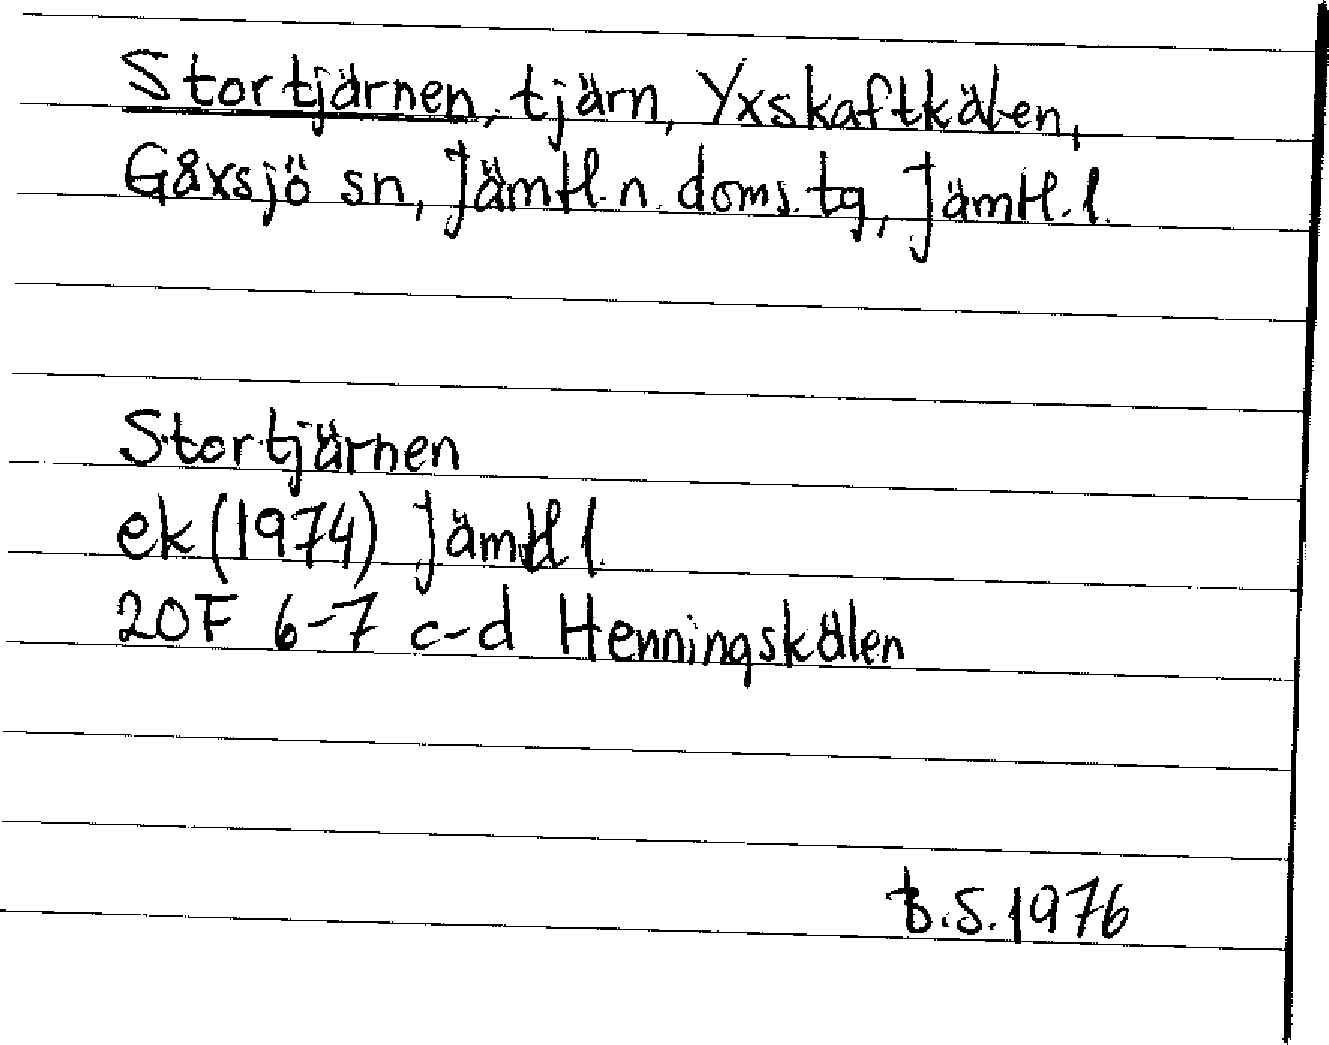 Stortjärnen, tjärn, Yxskaftkälen,
Gåxsjö sn, Jämtl. n. doms. tg, Jämtl. l.
Stortjärnen
ek (1974) Jämtl l.
20F 6-7 c-d Henningskälen
B.S. 1976